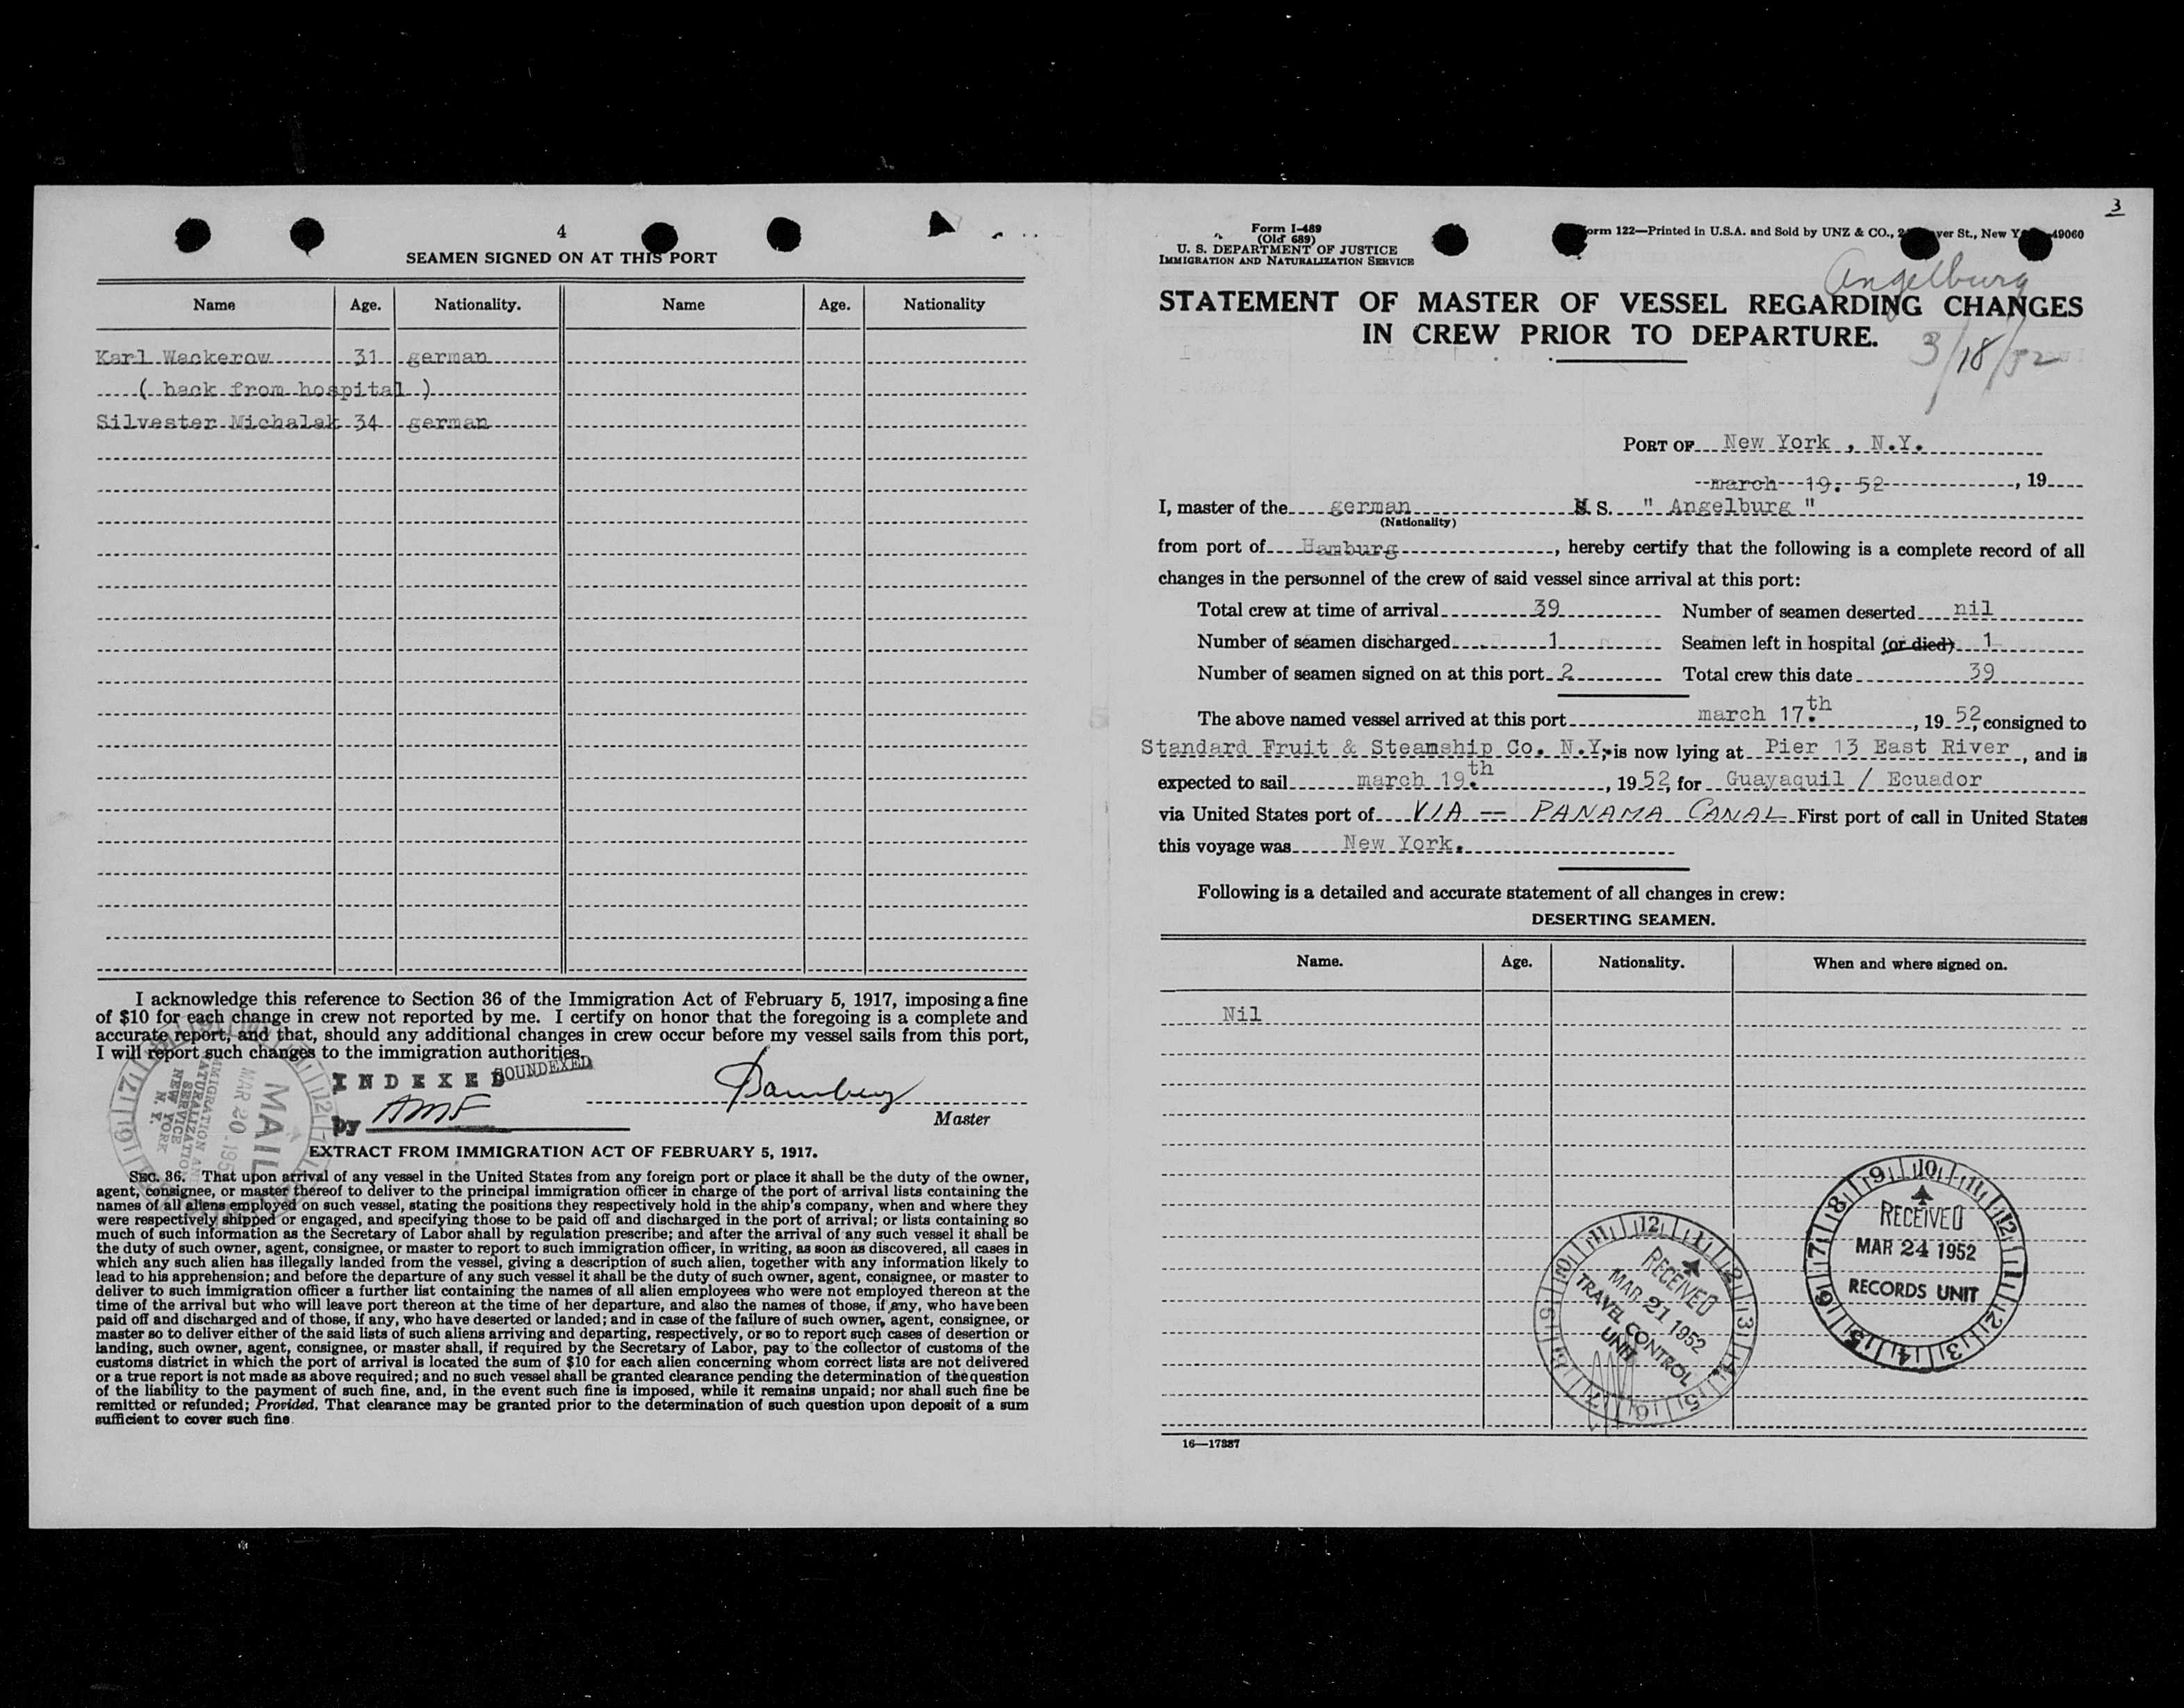 4
SEAMEN SIGNED ON AT THIS PORT
Name Age. Nationality. Name Age. Nationality
Karl Wackerow 31 german
( back from hospital )
Silvester Michalak 34 german
I acknowledge this reference to Section 36 of the Immigration Act of February 5, 1917, imposing a fine
of $10 for each change in crew not reported by me. I certify on honor that the foregoing is a complete and
accurate report, and that, should any additional changes in crew occur before my vessel sails from this port,
I will report such changes to the immigration authorities.
INDEXED
SOUNDEXED
by AMF
Master
MAIL
MAR 20 195
IMMIGRATION AND
NATURALIZATION
SERVICE
NEW YORK
N. Y.
EXTRACT FROM IMMIGRATION ACT OF FEBRUARY 5, 1917.
SEC. 36. That upon arrival of any vessel in the United States from any foreign port or place it shall be the duty of the owner,
agent, consignee, or master thereof to deliver to the principal immigration officer in charge of the port of arrival lists containing the
names of all aliens employed on such vessel, stating the positions they respectively hold in the ship's company, when and where they
were respectively shipped or engaged, and specifying those to be paid off and discharged in the port of arrival; or lists containing so
much of such information as the Secretary of Labor shall by regulation prescribe; and after the arrival of any such vessel it shall be
the duty of such owner, agent, consignee, or master to report to such immigration officer, in writing, as soon as discovered, all cases in
which any such alien has illegally landed from the vessel, giving a description of such alien, together with any information likely to
lead to his apprehension; and before the departure of any such vessel it shall be the duty of such owner, agent, consignee, or master to
deliver to such immigration officer a further list containing the names of all alien employees who were not employed thereon at the
time of the arrival but who will leave port thereon at the time of her departure, and also the names of those, if any, who have been
paid off and discharged and of those, if any, who have deserted or landed; and in case of the failure of such owner, agent, consignee, or
master so to deliver either of the said lists of such aliens arriving and departing, respectively, or so to report such cases of desertion or
landing, such owner, agent, consignee, or master shall, if required by the Secretary of Labor, pay to the collector of customs of the
customs district in which the port of arrival is located the sum of $10 for each alien concerning whom correct lists are not delivered
or a true report is not made as above required; and no such vessel shall be granted clearance pending the determination of the question
of the liability to the payment of such fine, and, in the event such fine is imposed, while it remains unpaid; nor shall such fine be
remitted or refunded; Provided, That clearance may be granted prior to the determination of such question upon deposit of a sum
sufficient to cover such fine.
3
Form I-489
(Old 689)
U. S. DEPARTMENT OF JUSTICE
IMMIGRATION AND NATURALIZATION SERVICE
Form 122—Printed in U.S.A. and Sold by UNZ & CO., St., New 49060
Angelburg
STATEMENT OF MASTER OF VESSEL REGARDING CHANGES
IN CREW PRIOR TO DEPARTURE.
3/18/52
PORT OF New York , N.Y.
march 19. 52, 19
I, master of the german S. " Angelburg "
(Nationality)
from port of Hamburg, hereby certify that the following is a complete record of all
changes in the personnel of the crew of said vessel since arrival at this port:
Total crew at time of arrival 39 Number of seamen deserted nil
Number of seamen discharged 1 Seamen left in hospital (or died) 1
Number of seamen signed on at this port 2 Total crew this date 39
The above named vessel arrived at this port march 17.th, 19 52, consigned to
Standard Fruit & Steamship Co. N.Y, is now lying at Pier 13 East River, and is
expected to sail march 19.th, 19 52, for Guayaquil / Ecuador
via United States port of VIA — PANAMA CANAL First port of call in United States
this voyage was New York.
Following is a detailed and accurate statement of all changes in crew:
DESERTING SEAMEN.
Name. Age. Nationality. When and where signed on.
Nil
RECEIVED
MAR 21 1952
TRAVEL CONTROL
UNIT
RECEIVED
MAR 24 1952
RECORDS UNIT
16—17887